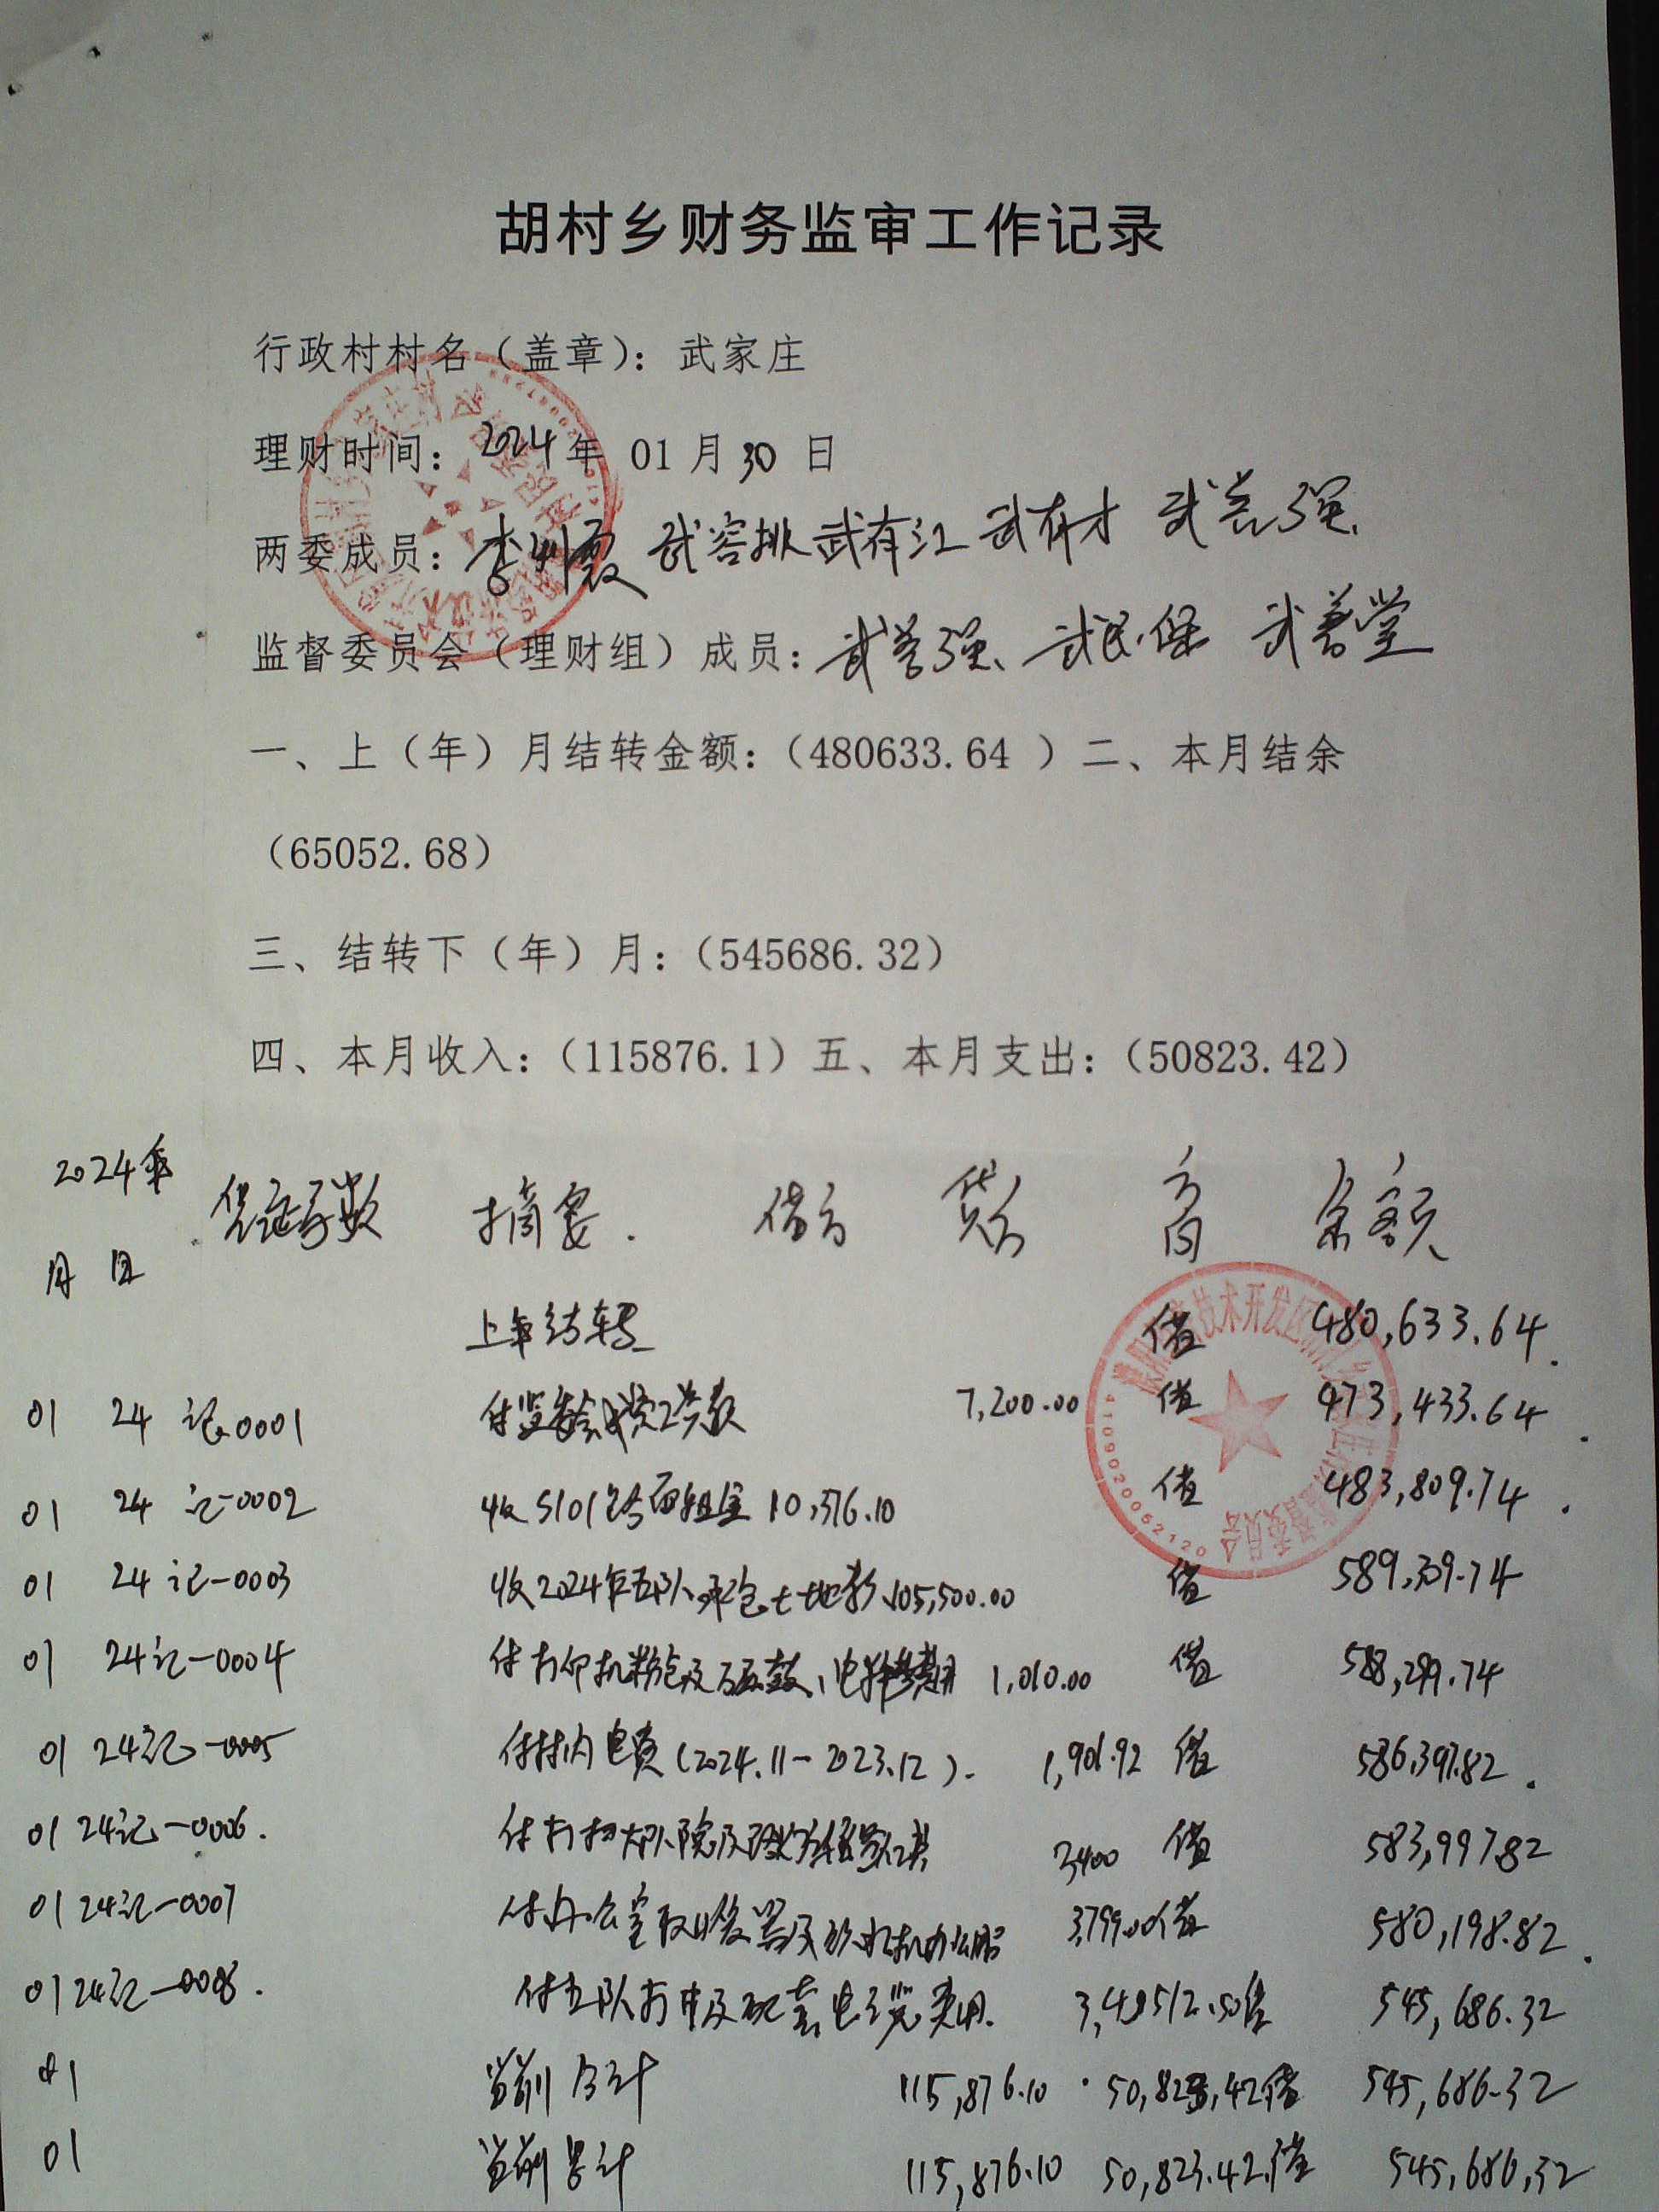 胡村乡财务监审工作记录
行政村村名（盖章）：武家庄
理财时间：2024年 01月30日
两委成员： 武有江 武有才
监督委员会（理财组）成员： 武善堂
一、上（年）月结转金额：（480633.64 ）二、本月结余
（65052.68）
三、结转下（年）月：（545686.32）
四、本月收入：（115876.1）五、本月支出：（50823.42）
2024年
月 日 凭证字数 摘要 借方 贷方 方向 余额
上年结转 借 480,633.64
01 24 记0001 7,200.00 借 473,433.64
01 24 记-0002 收S101 10,376.10 借 483,809.74
01 24 记-0003 收2024年五队承包土地款105,500.00 借 589,309.74
01 24记-0004 付打印机粉包及硒鼓、 1,010.00 借 588,299.74
01 24记-0005 付村内电费(2024.11-2023.12). 1,901.92 借 586,397.82
01 24记-0006. 付打扫大队院及 2400 借 583,997.82
01 24记-0007 付办公室 3,799.00借 580,198.82
01 24记-0008. 付五队打井及配套电缆费用. 借 545,686.32
01 当前合计 115,876.10 50,823.42借 545,686.32
01 当前累计 115,876.10 50,823.42借 545,686.32
技术开发区
4109020062120